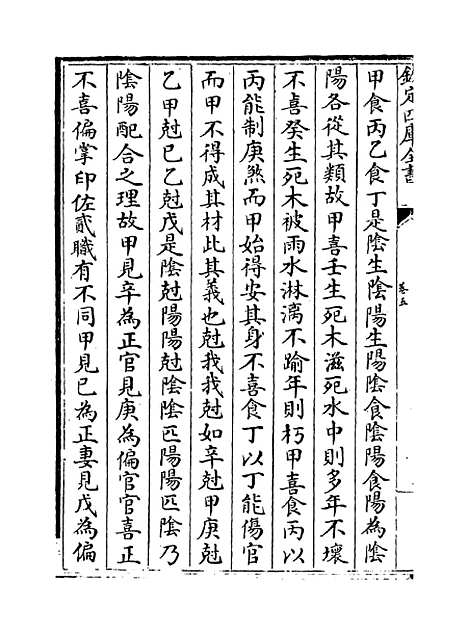 欽定四庫全書
卷五
甲食丙乙食丁是陰生陰陽生陽陰食陰陽食陽為陰
陽各從其類故甲喜壬生死木滋死水中則多年不壞
不喜癸生死木被雨水淋漓不踰年則朽甲喜食丙以
丙能制庚煞而甲始得安其身不喜食丁以丁能傷官
而甲不得成其材此其義也尅我我尅如辛尅甲庚尅
乙甲尅巳乙尅戊是陰尅陽陽尅陰陰匹陽陽匹陰乃
陰陽配合之理故甲見辛為正官見庚為偏官官喜正
不喜偏掌印佐貳職有不同甲見巳為正妻見戊為偏